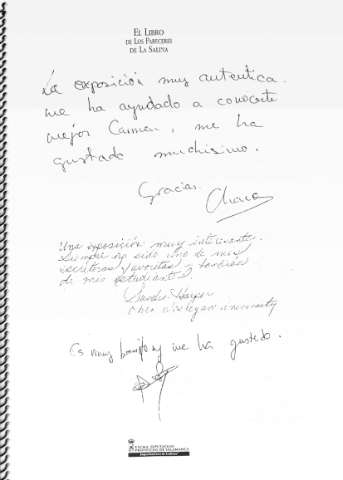 EL LIBRO
DE LOS PARECERES
DE LA SALINA
La exposición muy autentica.
me ha ayudado a conocerte
mejor Carmen, me ha
gustado muchísimo.
Gracias.
Una exposición muy interesante.
Siempre ha sido uno de mis
escritoras favoritas y también
de mis estudiantes.
Ohio Wesleyan University
Es muy bonito y me ha gustado.
EXCMA. DIPUTACIÓN
PROVINCIAL DE SALAMANCA